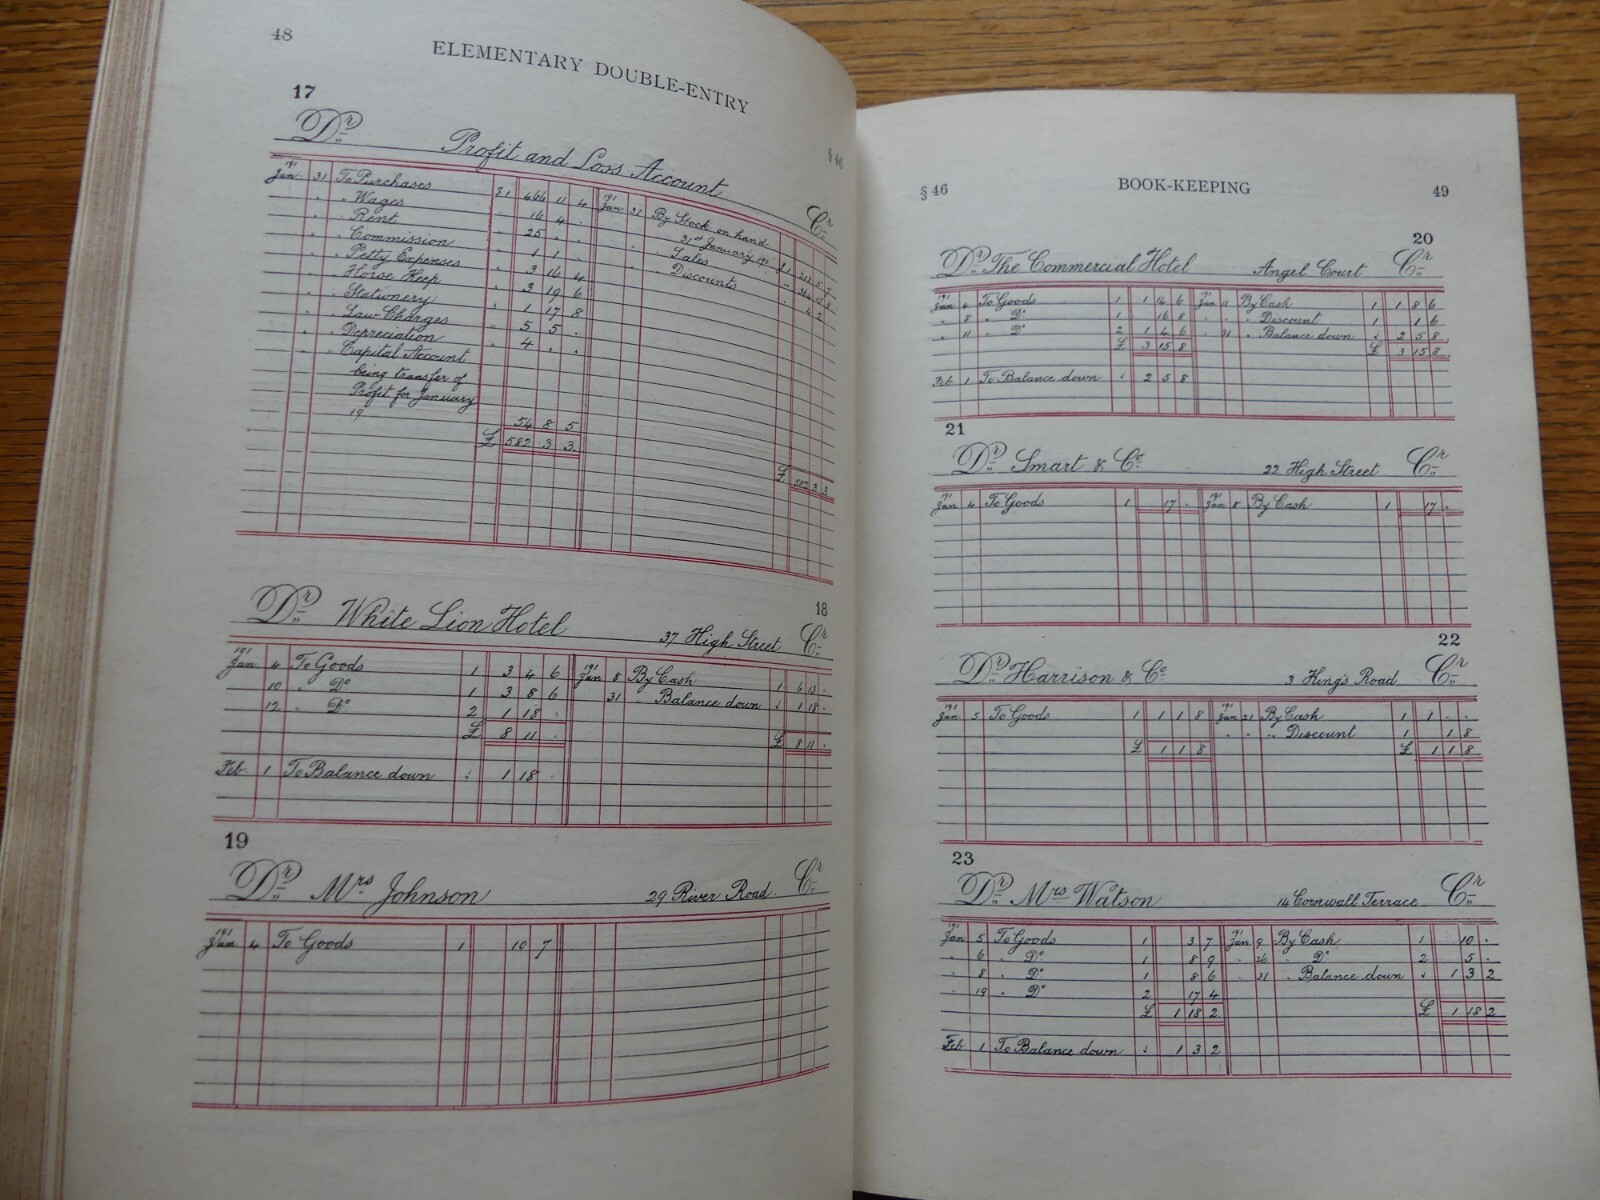 48
ELEMENTARY DOUBLE-ENTRY
17
§ 46
Dr Profit and Loss Account Cr
191
Jan 31 To Purchases £1 466 11 4 191 Jan 31 By Stock on hand
" " Wages " 16 4 . 31st January 191 £1 213 5 7
" " Rent " 25 . . " " Sales
" " Commission " 1 1 . " " Discounts 4 2
" " Petty Expenses " 3 16 4
" " Horse Keep " 3 19 6
" " Stationery " 1 17 8
" " Law Charges " 5 5 .
" " Depreciation " 4 . .
" " Capital Account
being transfer of
Profit for January
19 54 8 5
£ 582 3 3 £ 582 3 3
18
Dr White Lion Hotel 37 High Street Cr
191 Jan 4 To Goods 1 3 4 6 191 Jan 8 By Cash 1 6 13 .
10 " Do 1 3 8 6 31 " Balance down ↓ 1 18 .
12 " Do 2 1 18 .
£ 8 11 . £ 8 11 .
Feb 1 To Balance down ↓ 1 18 .
19
Dr Mrs Johnson 29 River Road. Cr
191 Jan 4 To Goods 1 10 7
§ 46 BOOK-KEEPING 49
20
Dr The Commercial Hotel Angel Court Cr
191 Jan 4 To Goods 1 1 14 6 191 Jan 11 By Cash 1 1 8 6
" 8 " Do 1 16 8 " " " Discount 1 1 6
" 11 " Do 2 1 4 6 " 31 " Balance down ↓ 2 5 8
£ 3 15 8 £ 3 15 8
Feb 1 To Balance down ↓ 2 5 8
21
Dr Smart & Co 22 High Street Cr
191 Jan 4 To Goods 1 17 . 191 Jan 8 By Cash 1 17 .
22
Dr Harrison & Co 3 King's Road Cr
191 Jan 5 To Goods 1 1 1 8 191 Jan 31 By Cash 1 1 . .
" " " Discount 1 1 8
£ 1 1 8 £ 1 1 8
23
Dr Mrs Watson 14 Cornwall Terrace Cr
191 Jan 5 To Goods 1 3 7 191 Jan 9 By Cash 1 10 .
" 6 " Do 1 8 9 " 26 " Do 2 5 .
" 8 " Do 1 8 6 " 31 " Balance down ↓ 1 3 2
" 19 " Do 2 17 4
£ 1 18 2 £ 1 18 2
Feb 1 To Balance down ↓ 1 3 2